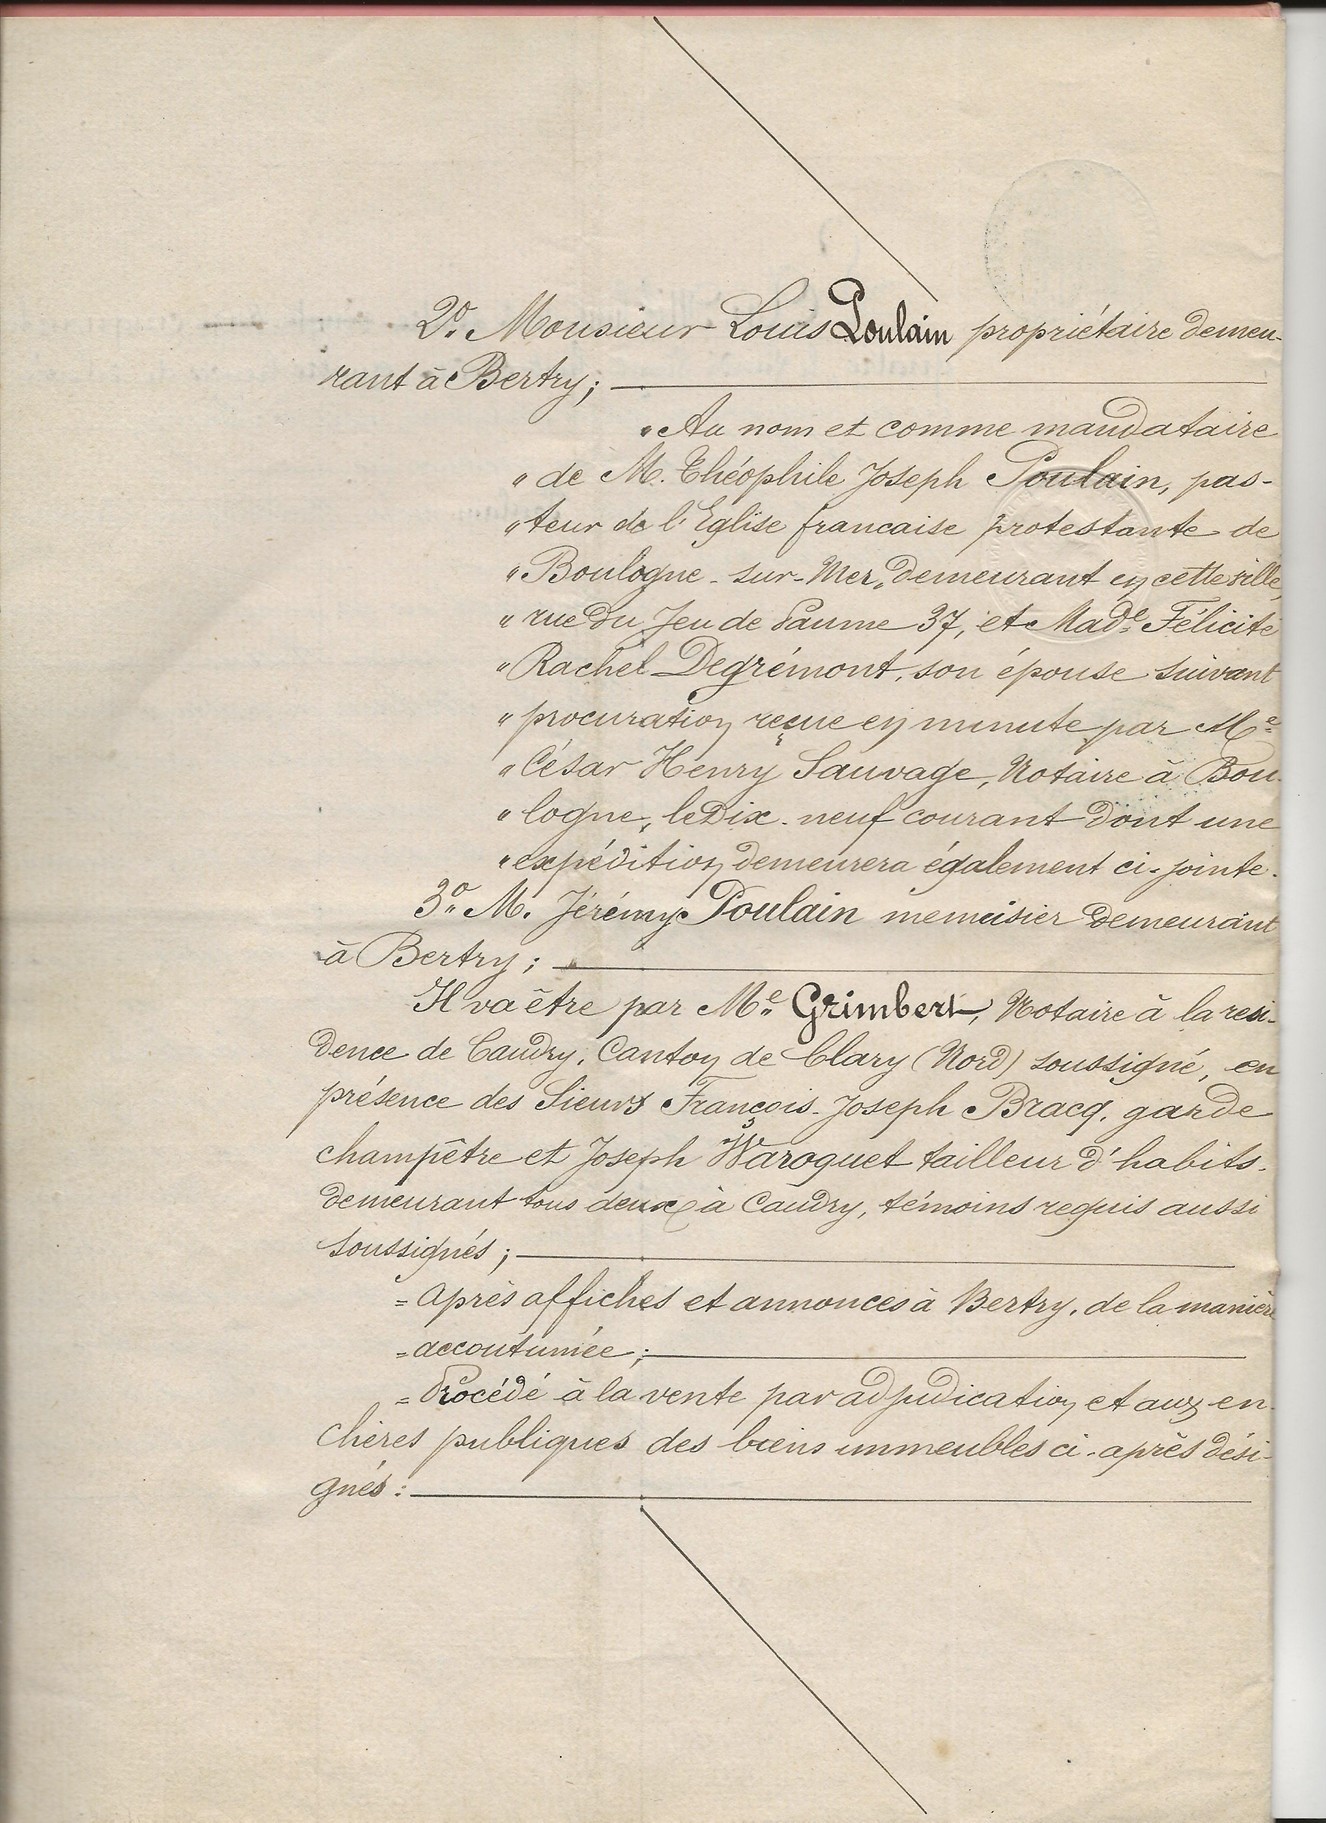 2º. Monsieur Louis Poulain propriétaire demeu-
rant à Bertry;
" Au nom et comme mandataire
" de M. Théophile Joseph Poulain, pas-
" teur de l'Eglise francaise protestante de
" Boulogne-sur-Mer, demeurant en cette ville,
" rue du Jeu de Paume 37, et Made Félicité
" Rachel Degrémont, son épouse suivant
" procuration reçue en minute par Me
" César Henry Sauvage, Notaire à Bou-
" logne, le Dix-neuf courant dont une
" expédition demeurera également ci-jointe.
3º. M. Jérémy Poulain menuisier demeurant
à Bertry;
Il va être par Me Grimbert, Notaire à la rési-
dence de Caudry, Canton de Clary (Nord) soussigné, en
présence des Sieurs François-Joseph Bracq, garde
champêtre et Joseph Waroquet tailleur d'habits.
demeurant tous deux à Caudry, témoins requis aussi
soussignés;
= Après affiches et annonces à Bertry, de la manière
= accoutumée;
= Procédé à la vente par adjudication et aux en-
chères publiques des biens immeubles ci-après dési-
gnés: